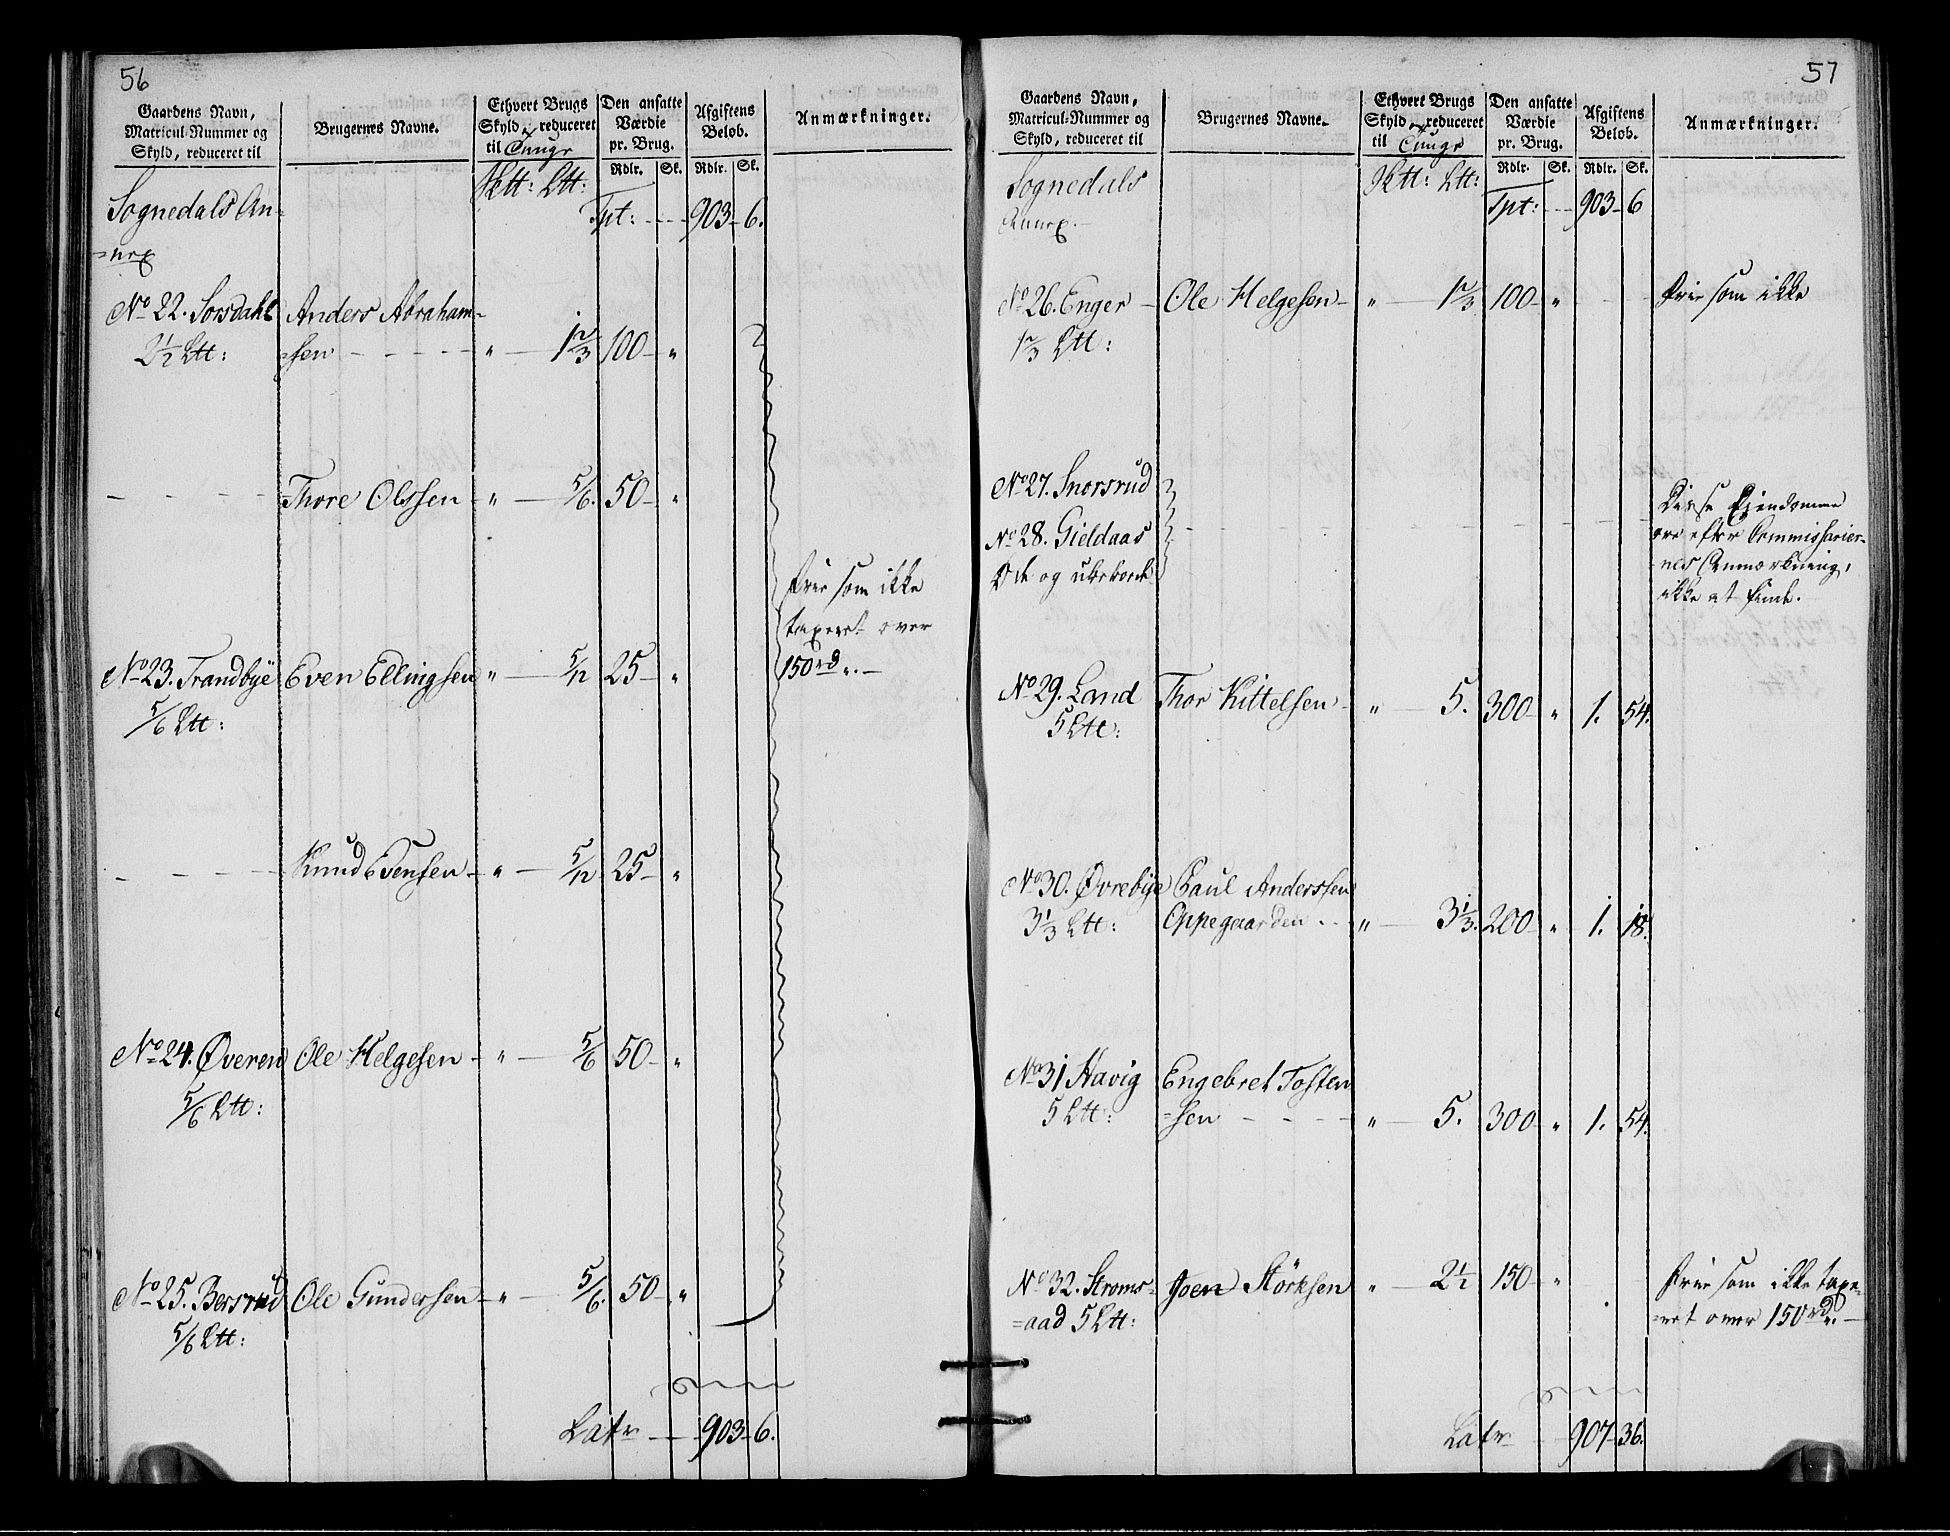 56
Gaardens Navn, Matricul-Nummer og Skyld, reduceret til
Brugernes Navne.
Ethvert Brugs Skyld, reduceret til Tunge
Den ansatte Værdie pr. Brug.
Afgiftens Beløb.
Anmærkninger.
Rdlr. Sk. Rdlr. Sk.
Sognedals An-
=nex
Tpt: - - - 903 - 6.
No 22. Sorsdahl Anders Abraham-
2½ Ltt: =sen - - - - - " - 1⅔ 100 - "
- - - - Thore Olssen - " - 5/6. 50 - "
frie som ikke
taxeret over
150rd ". -
No 23. Trandbye Even Ellingsen " - 5/12 25 - "
5/6 Ltt:
- - - - Knud Evensen - " - 5/12 25 - "
No 24. Øveren Ole Helgesen - " - 5/6 50 - "
5/6 Ltt:
No 25. Bersrud Ole Gundersen - " - 5/6. 50 - "
5/6 Ltt:
Latr - - 903 - 6.
57
Gaardens Navn, Matricul-Nummer og Skyld, reduceret til
Brugernes Navne.
Ethvert Brugs Skyld, reduceret til Tunge
Den ansatte Værdie pr. Brug.
Afgiftens Beløb.
Anmærkninger.
Rdlr. Sk. Rdlr. Sk.
Sognedals
Annex. -
Tpt: - - - 903 - 6
No 26. Enger - Ole Helgesen - " - 1⅔ 100 - " frie som ikke
1⅔ Ltt:
No 27. Snorsrud
No 28. Gieldaas
Øde og
Disse Ejendomme
ere efter Commissarier-
nes Anmærkning,
ikke at finde.
No 29. Land Thor Kittelsen - " - 5. 300 - " 1. 54.
5 Ltt:
No 30. Øvrebye Paul Anderssen
3⅓ Ltt: Oppegaarden - - " - 3⅓. 200 - " 1. 18.
No 31 Havig Engebret Tosten
5 Ltt: =sen - - - - " - 5. 300 - " 1. 54.
No 32. Stroms- Joen Störksen " - 2½ 150 - " frie som ikke taxe-
=aad 5 Ltt: =ret over 150rd ". -
Latr 907 - 36.